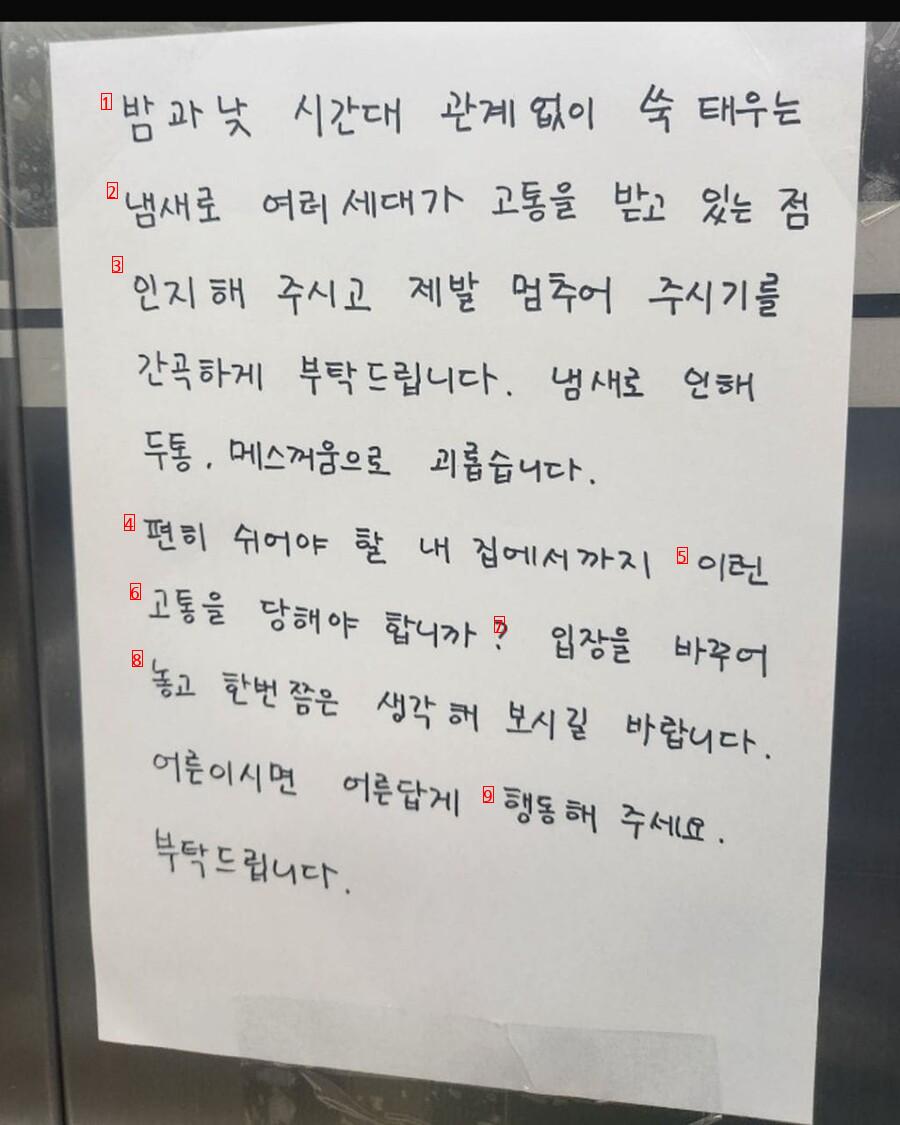 밤과 낮 시간대 관계 없이 쑥 태우는
냄새로 여러 세대가 고통을 받고 있는 점
인지해 주시고 제발 멈추어 주시기를
간곡하게 부탁드립니다. 냄새로 인해
두통, 메스꺼움으로 괴롭습니다.
편히 쉬어야 할 내 집에서까지 이런
고통을 당해야 합니까? 입장을 바꾸어
놓고 한번쯤은 생각해 보시길 바랍니다.
어른이시면 어른답게 행동해 주세요.
부탁드립니다.